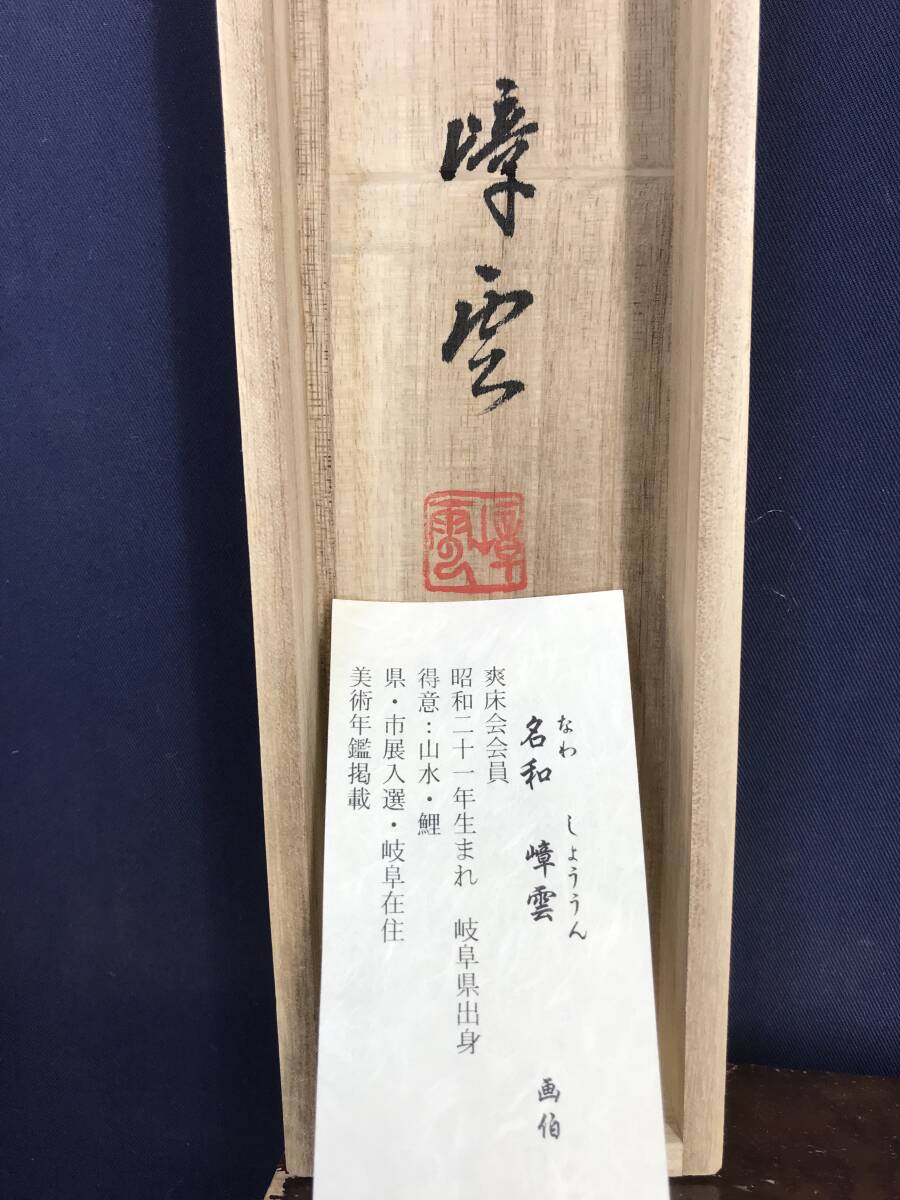 嶂雲
嶂雲
名和 嶂雲 画伯
なわ しょううん
爽床会会員
昭和二十一年生まれ 岐阜県出身
得意：山水・鯉
県・市展入選・岐阜在住
美術年鑑掲載